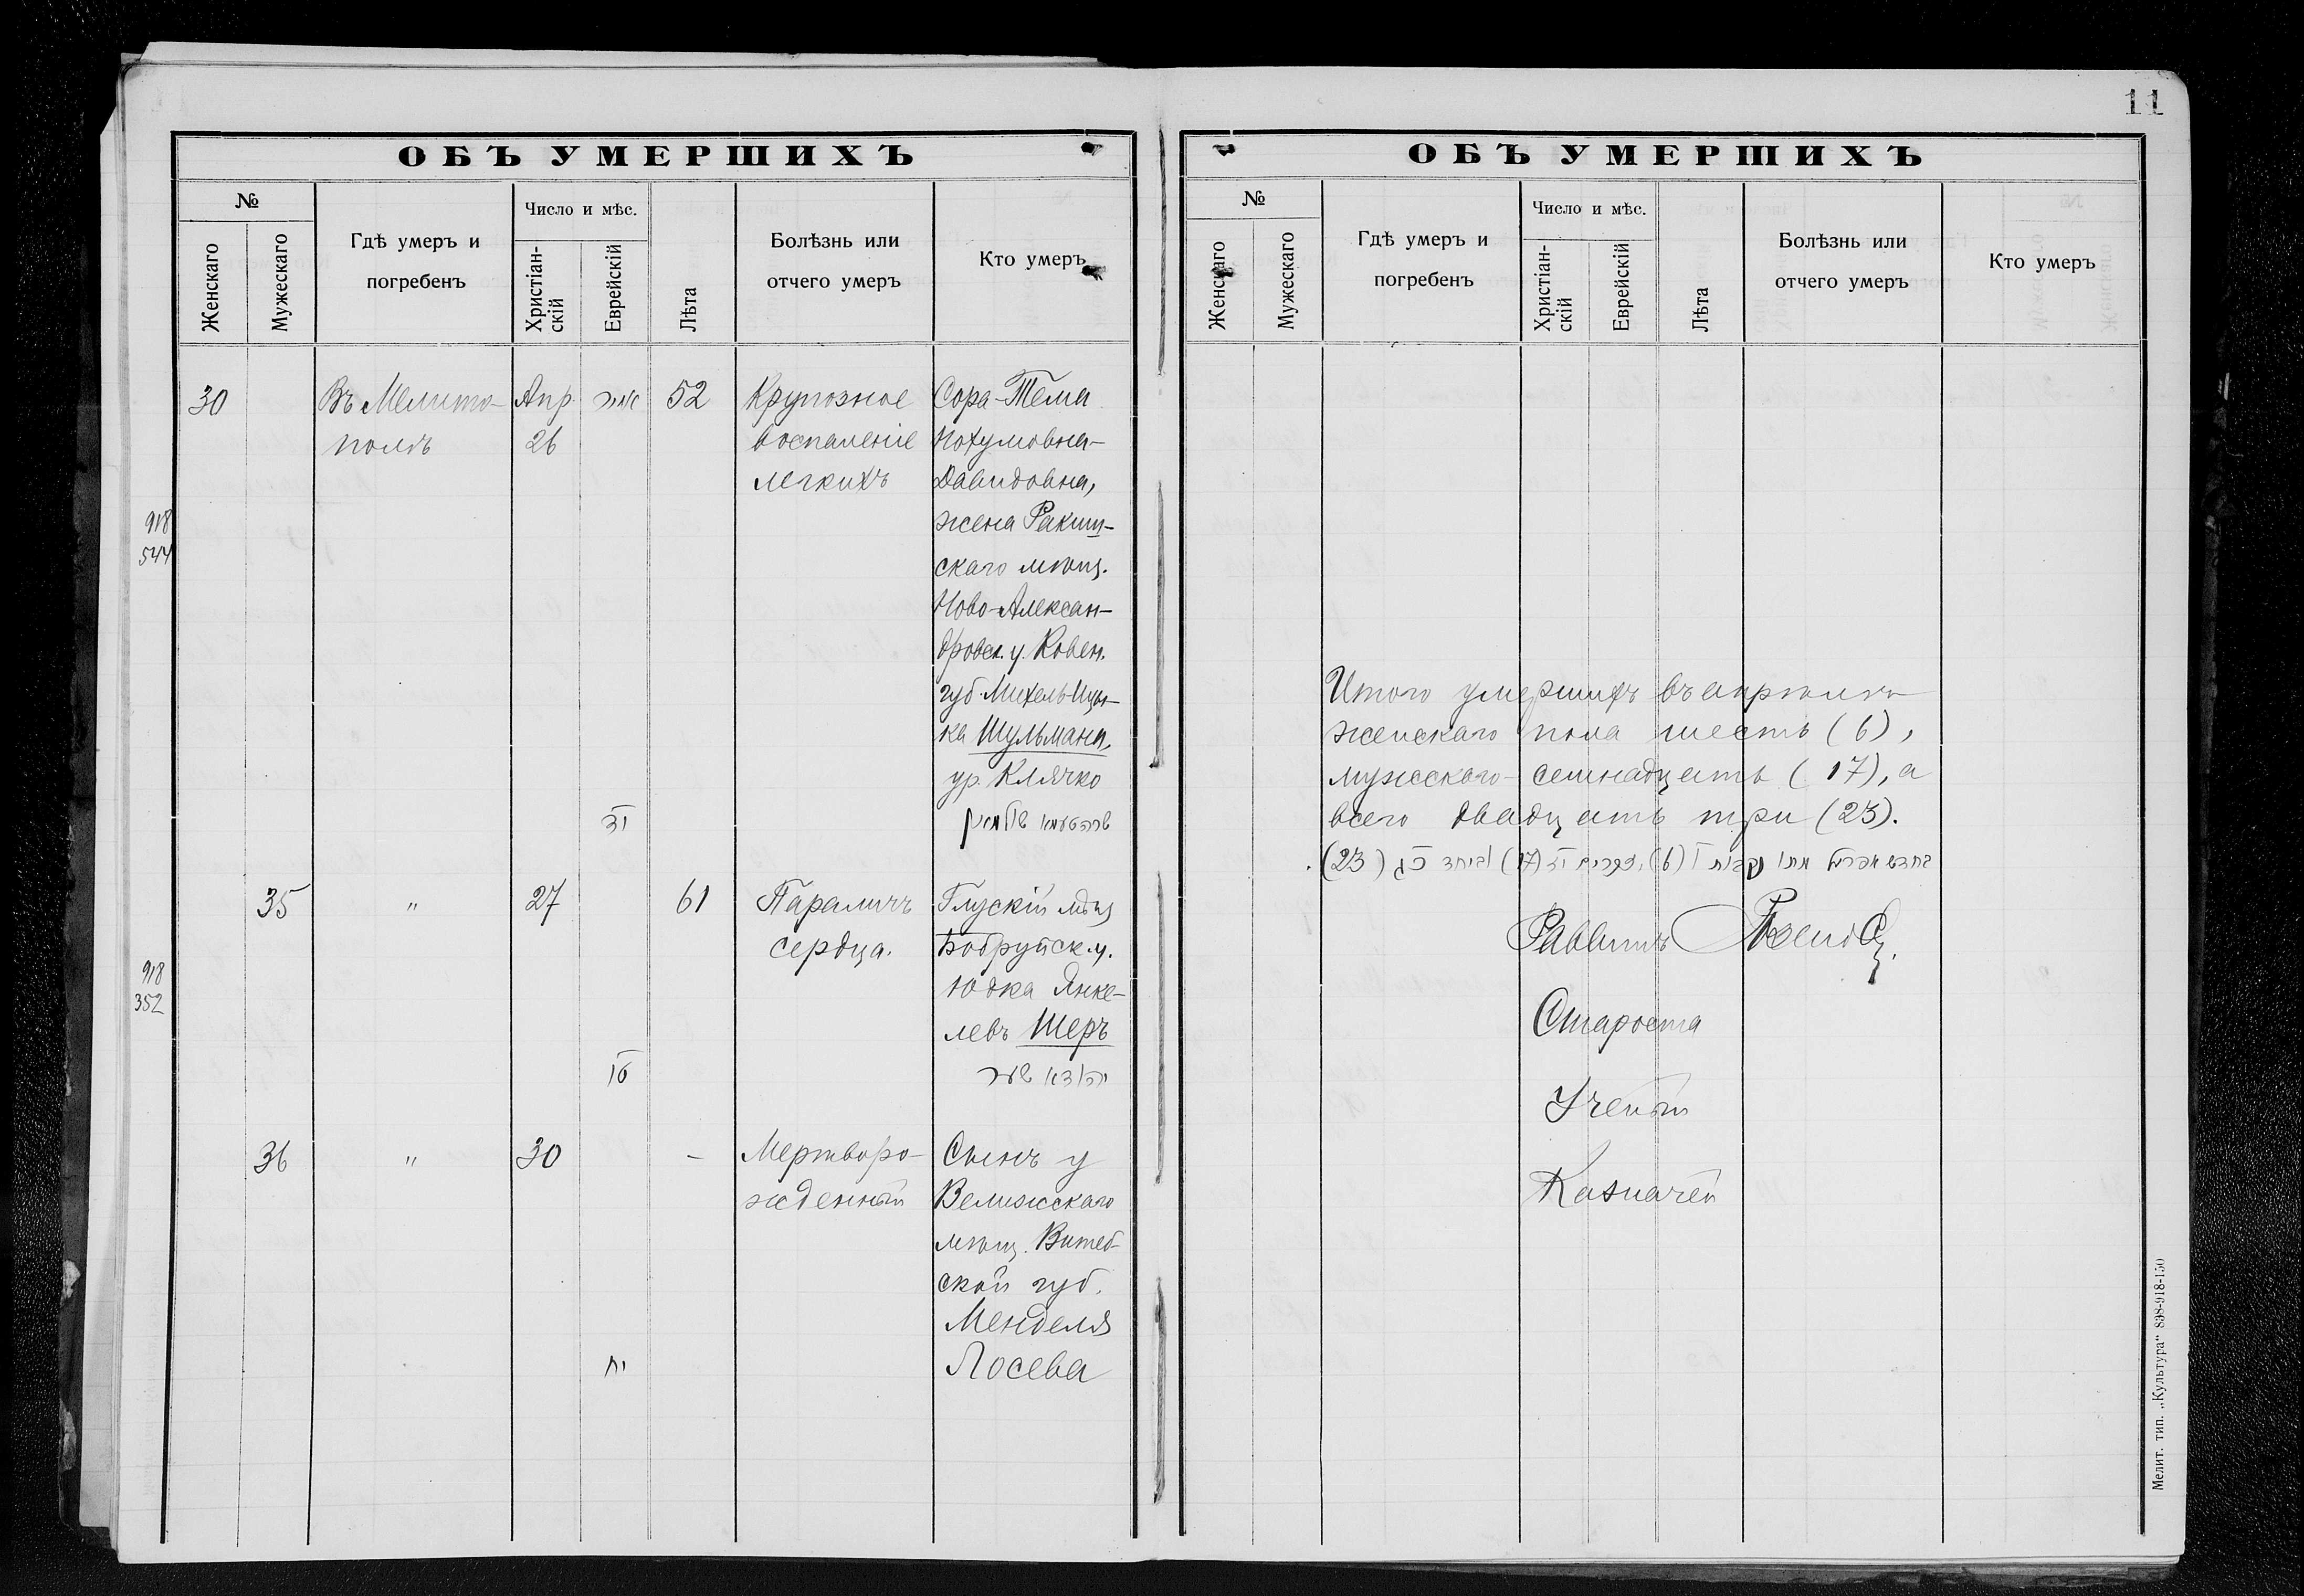 11
ОБЪ УМЕРШИХЪ
№
Женскаго
Мужескаго
Гдѣ умеръ и
погребенъ
Число и мѣс.
Христіан-
скій
Еврейскій
Лѣта
Болѣзнь или
отчего умеръ
Кто умеръ
30
Въ Мелито-
полѣ
Апр.
26
אייר
יד
52
Крупозное
воспаленіе
легкихъ
Сора-Тема
Нохумовна-
Давидовна,
жена Ракиш-
скаго мѣщ.
Ново-Алексан-
дровск. у. Ковен.
губ. Михель-Ицы-
ка Шульмана,
ур. Клячко
918
544
35
"
27
טו
61
Параличъ
сердца.
Глускій мѣщ
Бобруйск. у.
Юдка Янке-
левъ Шеръ
918
352
36
"
30
יח
-
Мертворо-
жденный
Сынъ у
Велижскаго
мѣщ. Витеб-
ской губ.
Менделя
Лосева
ОБЪ УМЕРШИХЪ
№
Женскаго
Мужескаго
Гдѣ умеръ и
погребенъ
Число и мѣс.
Христіан-
скій
Еврейскій
Лѣта
Болѣзнь или
отчего умеръ
Кто умеръ
Итого умершихъ въ апрѣлѣ
женскаго пола шесть (6),
мужескаго - семнадцать (17), а
всего двадцать три (23).
בחדש אפריל מתו נקבות ו (6), זכרים יז (17) וביחד כג (23).
Раввинъ
Староста
Ученый
Казначей
Мелит. тип. „Культура" 898-918-150